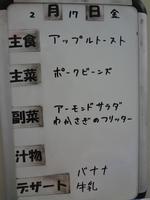 2月17日金
主食 アップルトースト
主菜 ポークビーンズ
副菜 アーモンドサラダ
わかさぎのフリッター
汁物
デザート バナナ
牛乳